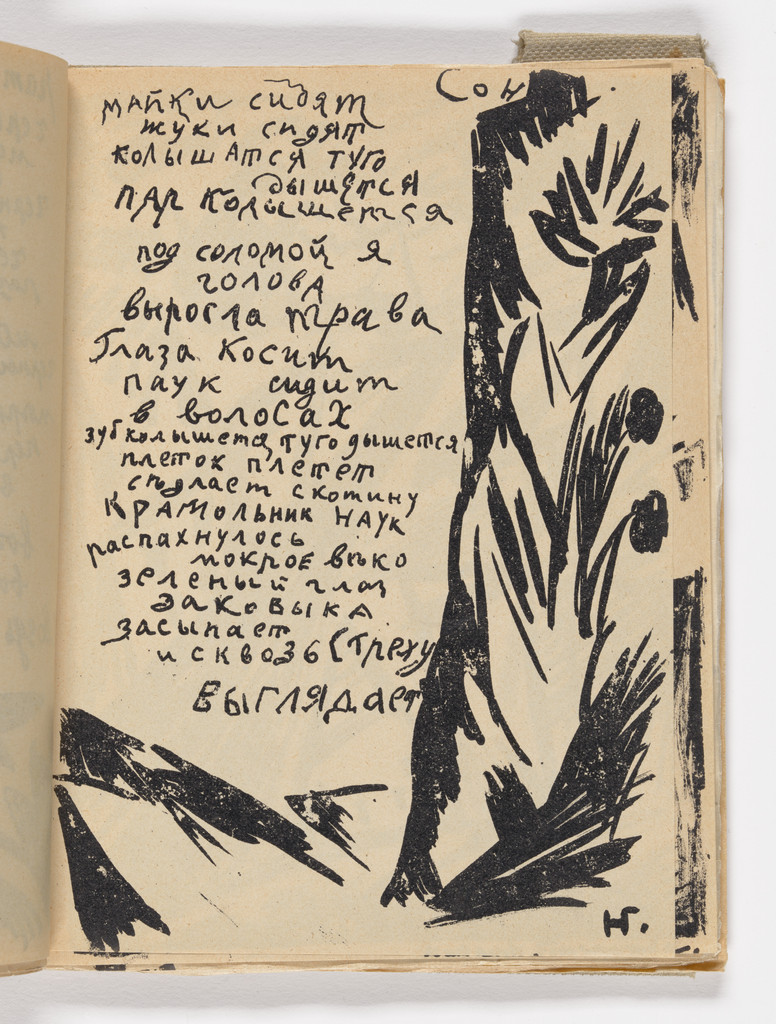 Сон
майки сидят
жуки сидят
колышатся туго
дышется
пар колышется
под соломой я
голова
выросла трава
Глаза косит
паук сидит
в волосах
зуб колышется туго дышется
плеток плетет
сделает скотину
крамольник наук
распахнулось
мокрое вѣко
зеленый глаз
заковыка
засыпает
и сквозь
выглядает
Н.Г.